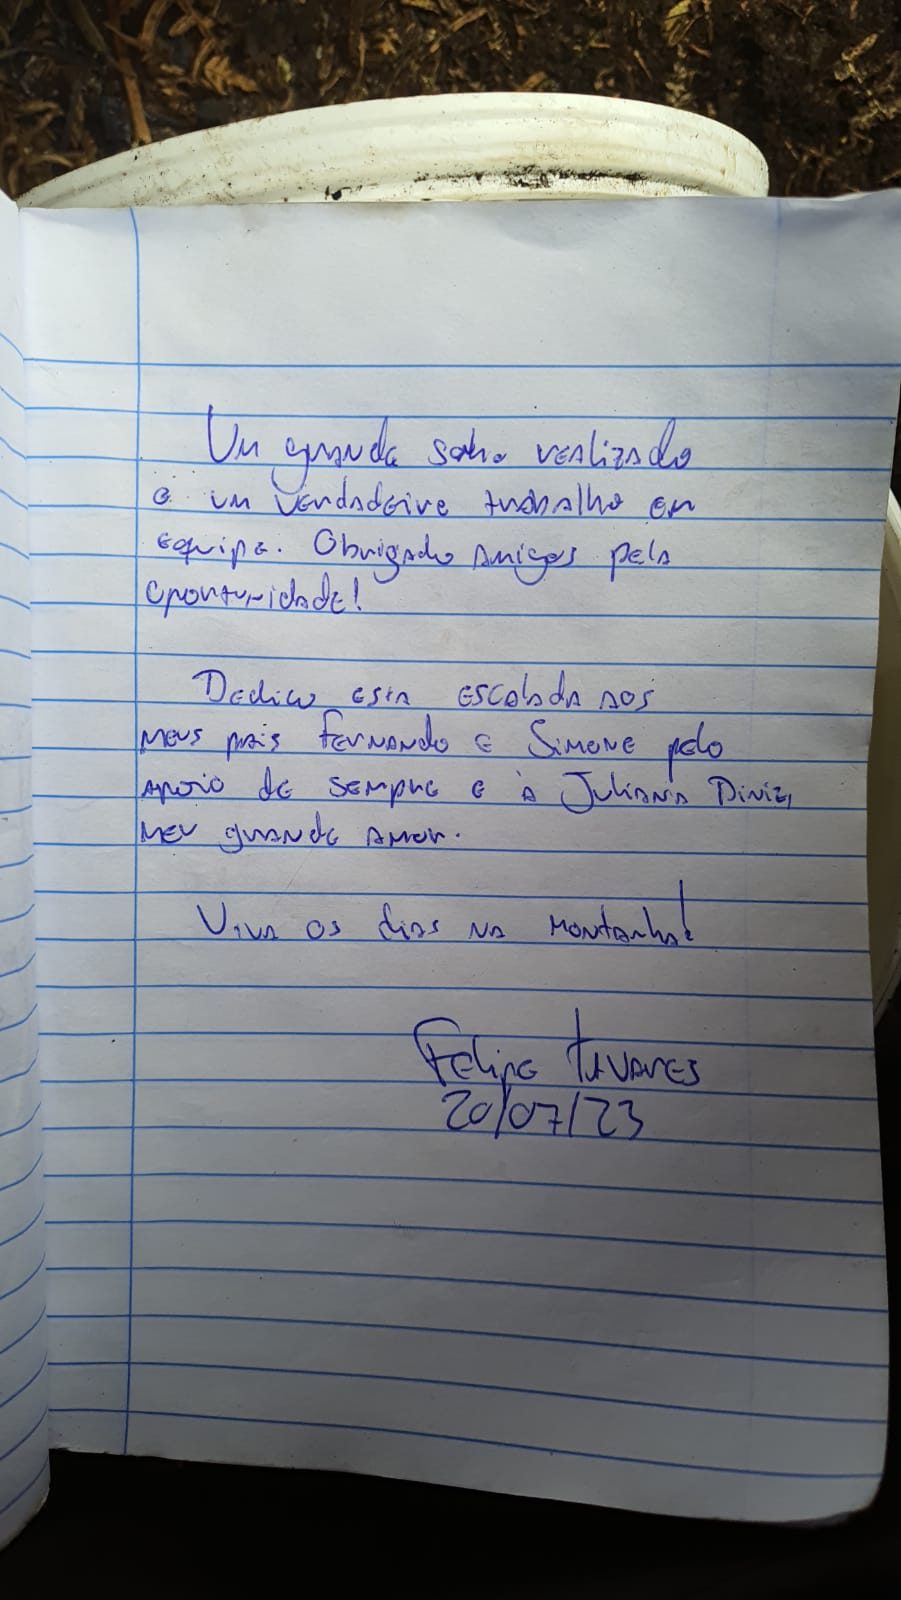 Um grande sonho realizado
e um verdadeiro trabalho em
equipe. Obrigado amigos pela
oportunidade!
Dedico esta escalada aos
meus pais Fernando e Simone pelo
apoio de sempre e à Juliana Diniz,
meu grande amor.
Viva os dias na montanha!
Felipe Tavares
20/07/23